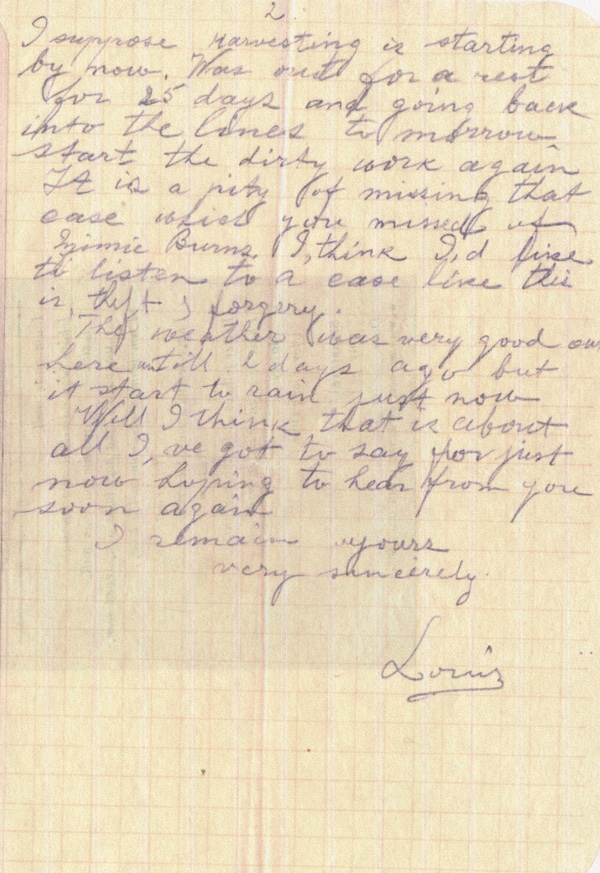 2
I suppose Harvesting is starting
by now. Was out for a rest
for 25 days and going back
into the lines to morrow
start the dirty work again
It is a pity of missing that
case which you missed of
Jimmie Burns. I, think I,d like
to listen to a case like this
is, theft & forgery.
The weather was very good out
here untill 2 days ago but
it start to rain just now
Well I think that is about
all I,ve got to say for just
now hoping to hear from you
soon again
I remain yours
very sincerely.
Louis